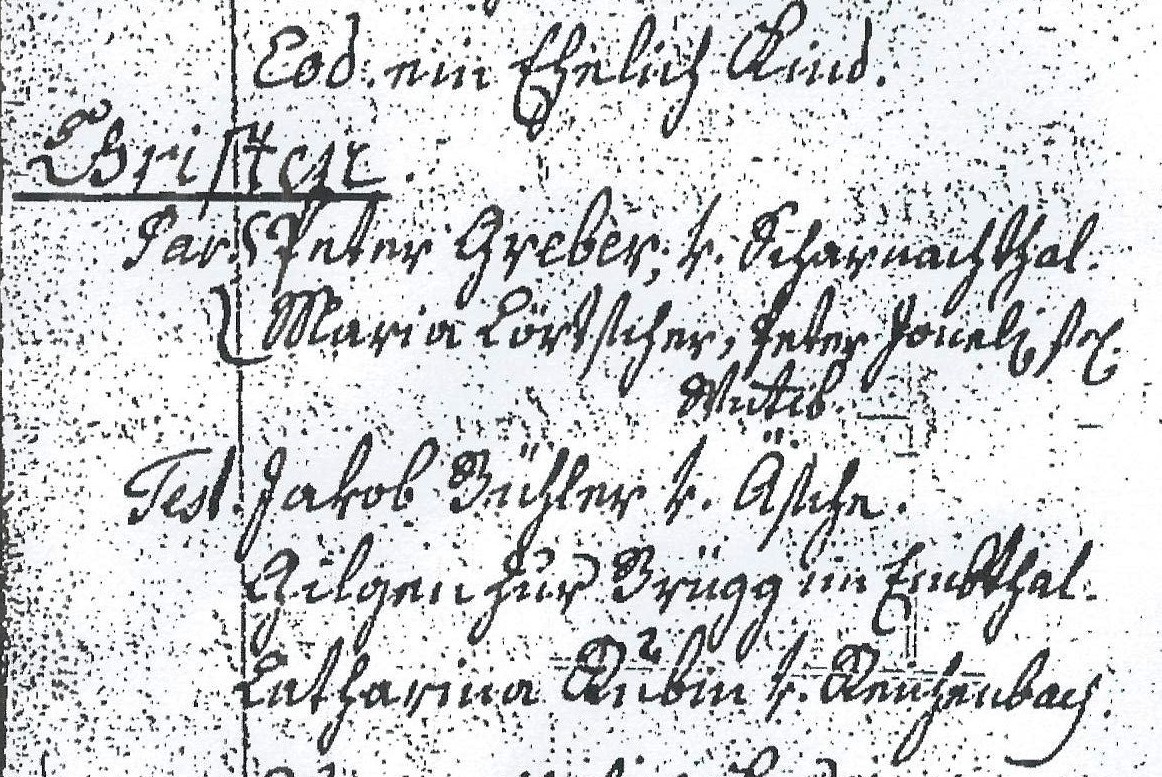 Eod. ein Ehelich Kind.
Christen.
Par. Peter Greber, v. Scharnachthal.
Maria Lörtscher, Peter Joneli sel.
Wittib.
Test. Jakob Bühler v. Äsche.
Gilgen zur Brügg im Emdthal.
Catharina Rubin v. Reichenbach.